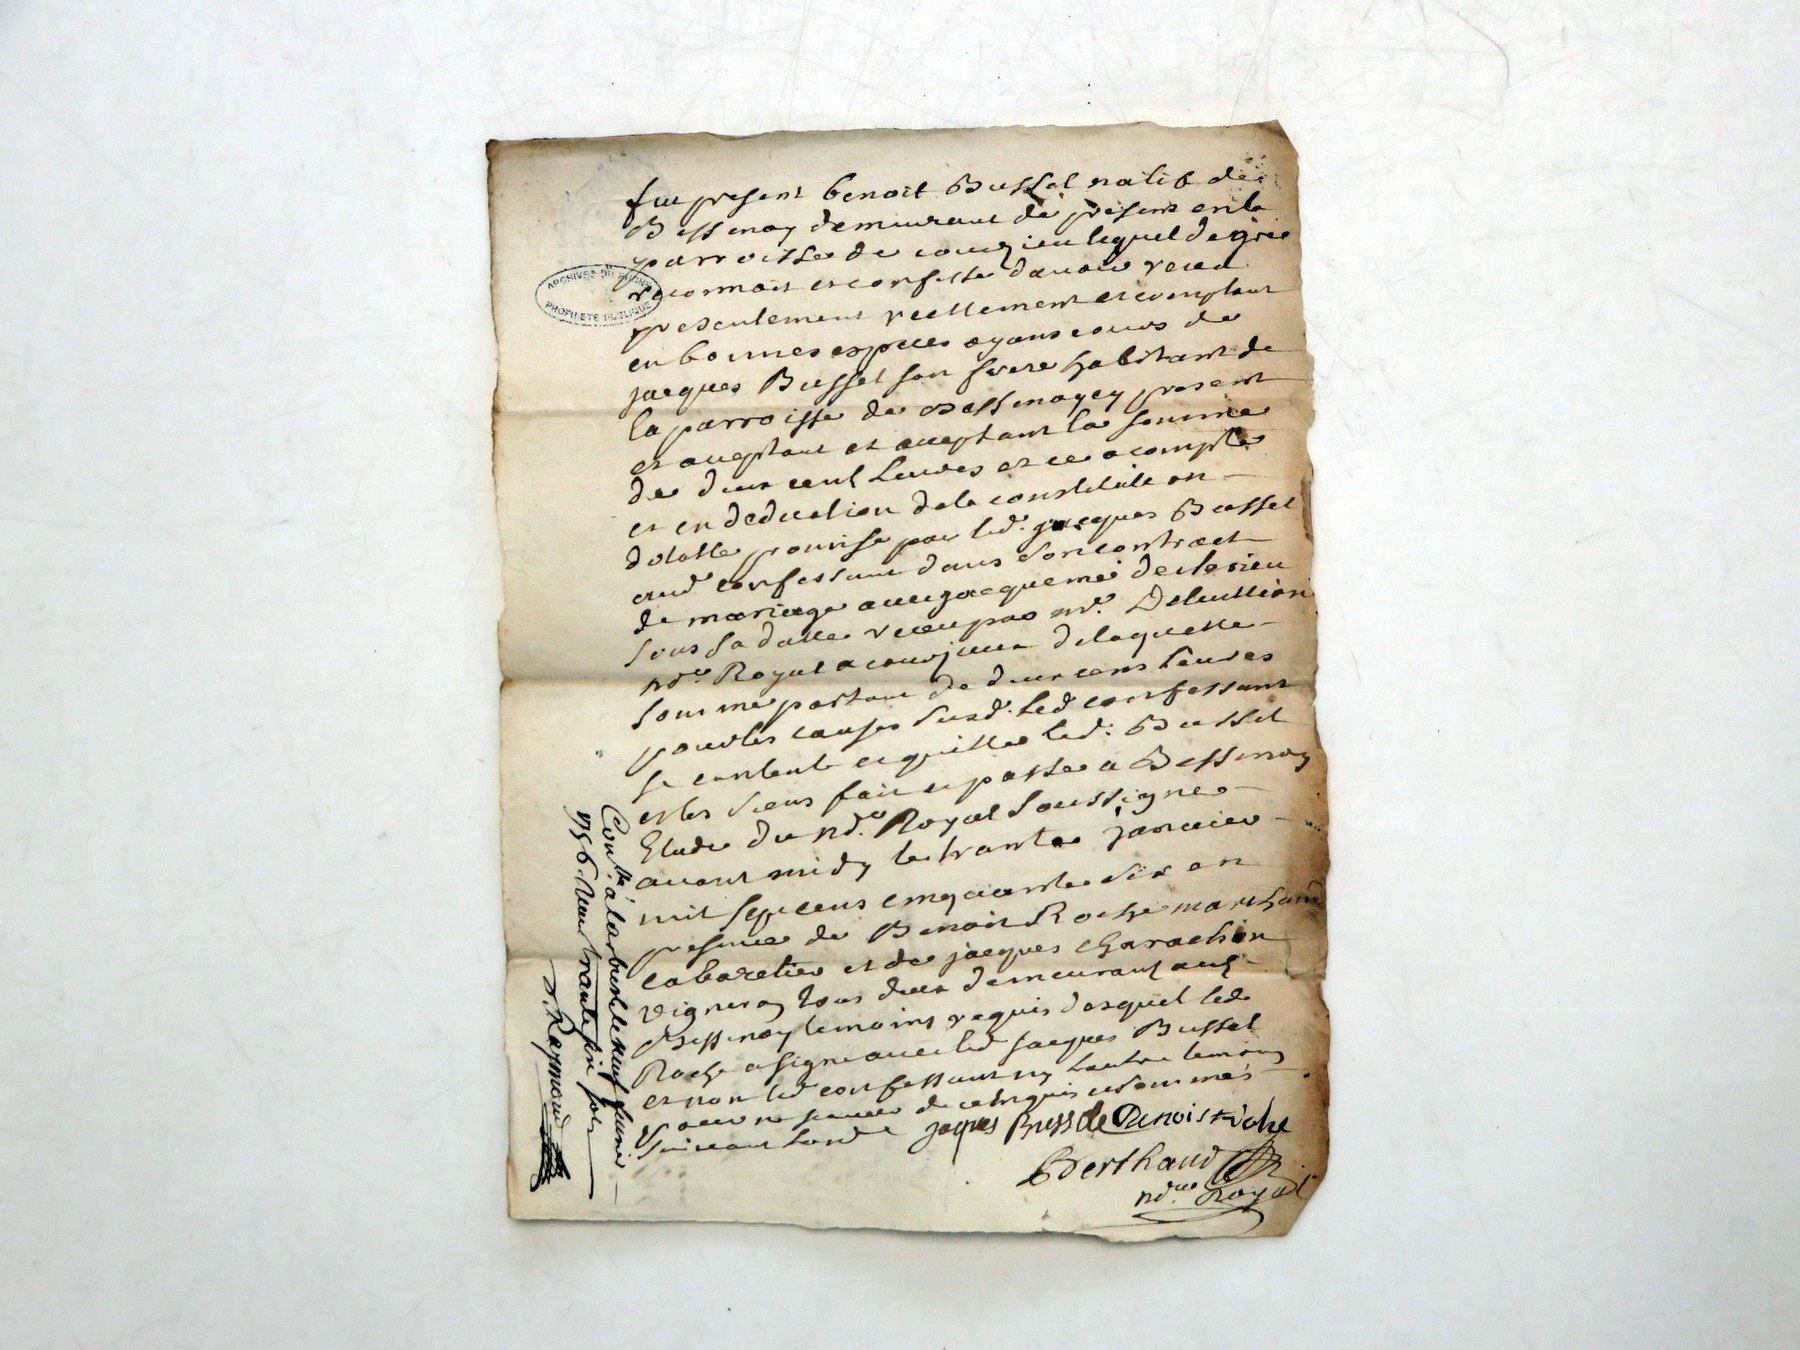 fut present benoit Bussel natif de
Bessenay demeurant de present en la
parroisse de courzieu lequel de gré
reconnoit et confesse d'avoir receu
presentement reellement et comptant
en bonnes especes ayant cours de
jacques Bussel son frere habitant de
la parroisse de Bessenay cy present
et aceptant et aceptant la somme
de deux cent Livres et ce a compte
et en deduction de la constitution
dotalle promise par led. jacques Bussel
aud confessant dans son contract
de mariage avec jacqueme
sous sa datte receu par me.
nore Royal a courzieu de laquelle
somme portant de deux cens Livres
pour les causes susd. led confessant
se contente et quitte led. Bussel
et les siens fait et passé a Bessenay
Etude du nore Royal soussigné
avant midy le trante janvier
mil sept cens cinquante six en
presence de Benoit Roche marchand
cabaretier et de jacques Charachon
vigneron tous deux demeurant aud
Bessenay temoins requis desquel led
Roche a signé avec led jacques Bussel
et non led confessant ny l'autre temoin
pour ne scavoir de ce enquis et sommés
suivant l'ord
jaques Bussele Benoist Roche
Berthaud
nore Royal
Conllé a Larbresle le neuf fevrier
1756. Receu trante six sols
Raymond
ARCHIVES DU RHONE
PROPRIETE PUBLIQUE